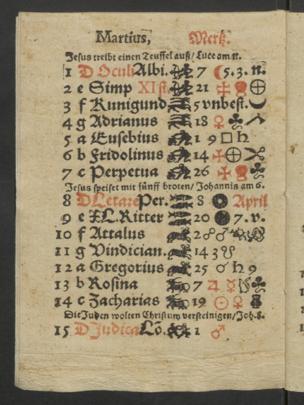 Martius, Mertz.
Jesus treibt einen Teuffel auß/ Luce am 11.
1 D Oculi Albi. 7 5.3. n.
2 e Simp XI st 21
3 f Kunigund 5 vnbest.
4 g Adrianus 18
5 a Eusebius 1 9 □ ♄
6 b Fridolinus 14
7 c Perpetua 26
Jesus speiset mit fünff broten/ Johannis am 6.
8 D Letare Per. 8 April
9 e XL. Ritter 20 7. v.
10 f Attalus 2 ☍ ♂
11 g Vindician. 14 3
12 a Gregorius 25 ☌ ♄ 9
13 b Rosina 7 ♃ ☿
14 c Zacharias 19 ☉ ♀
Die Juden wolten Christum versteinigen/ Joh. 8.
15 D Judica Lo. 1 ♂